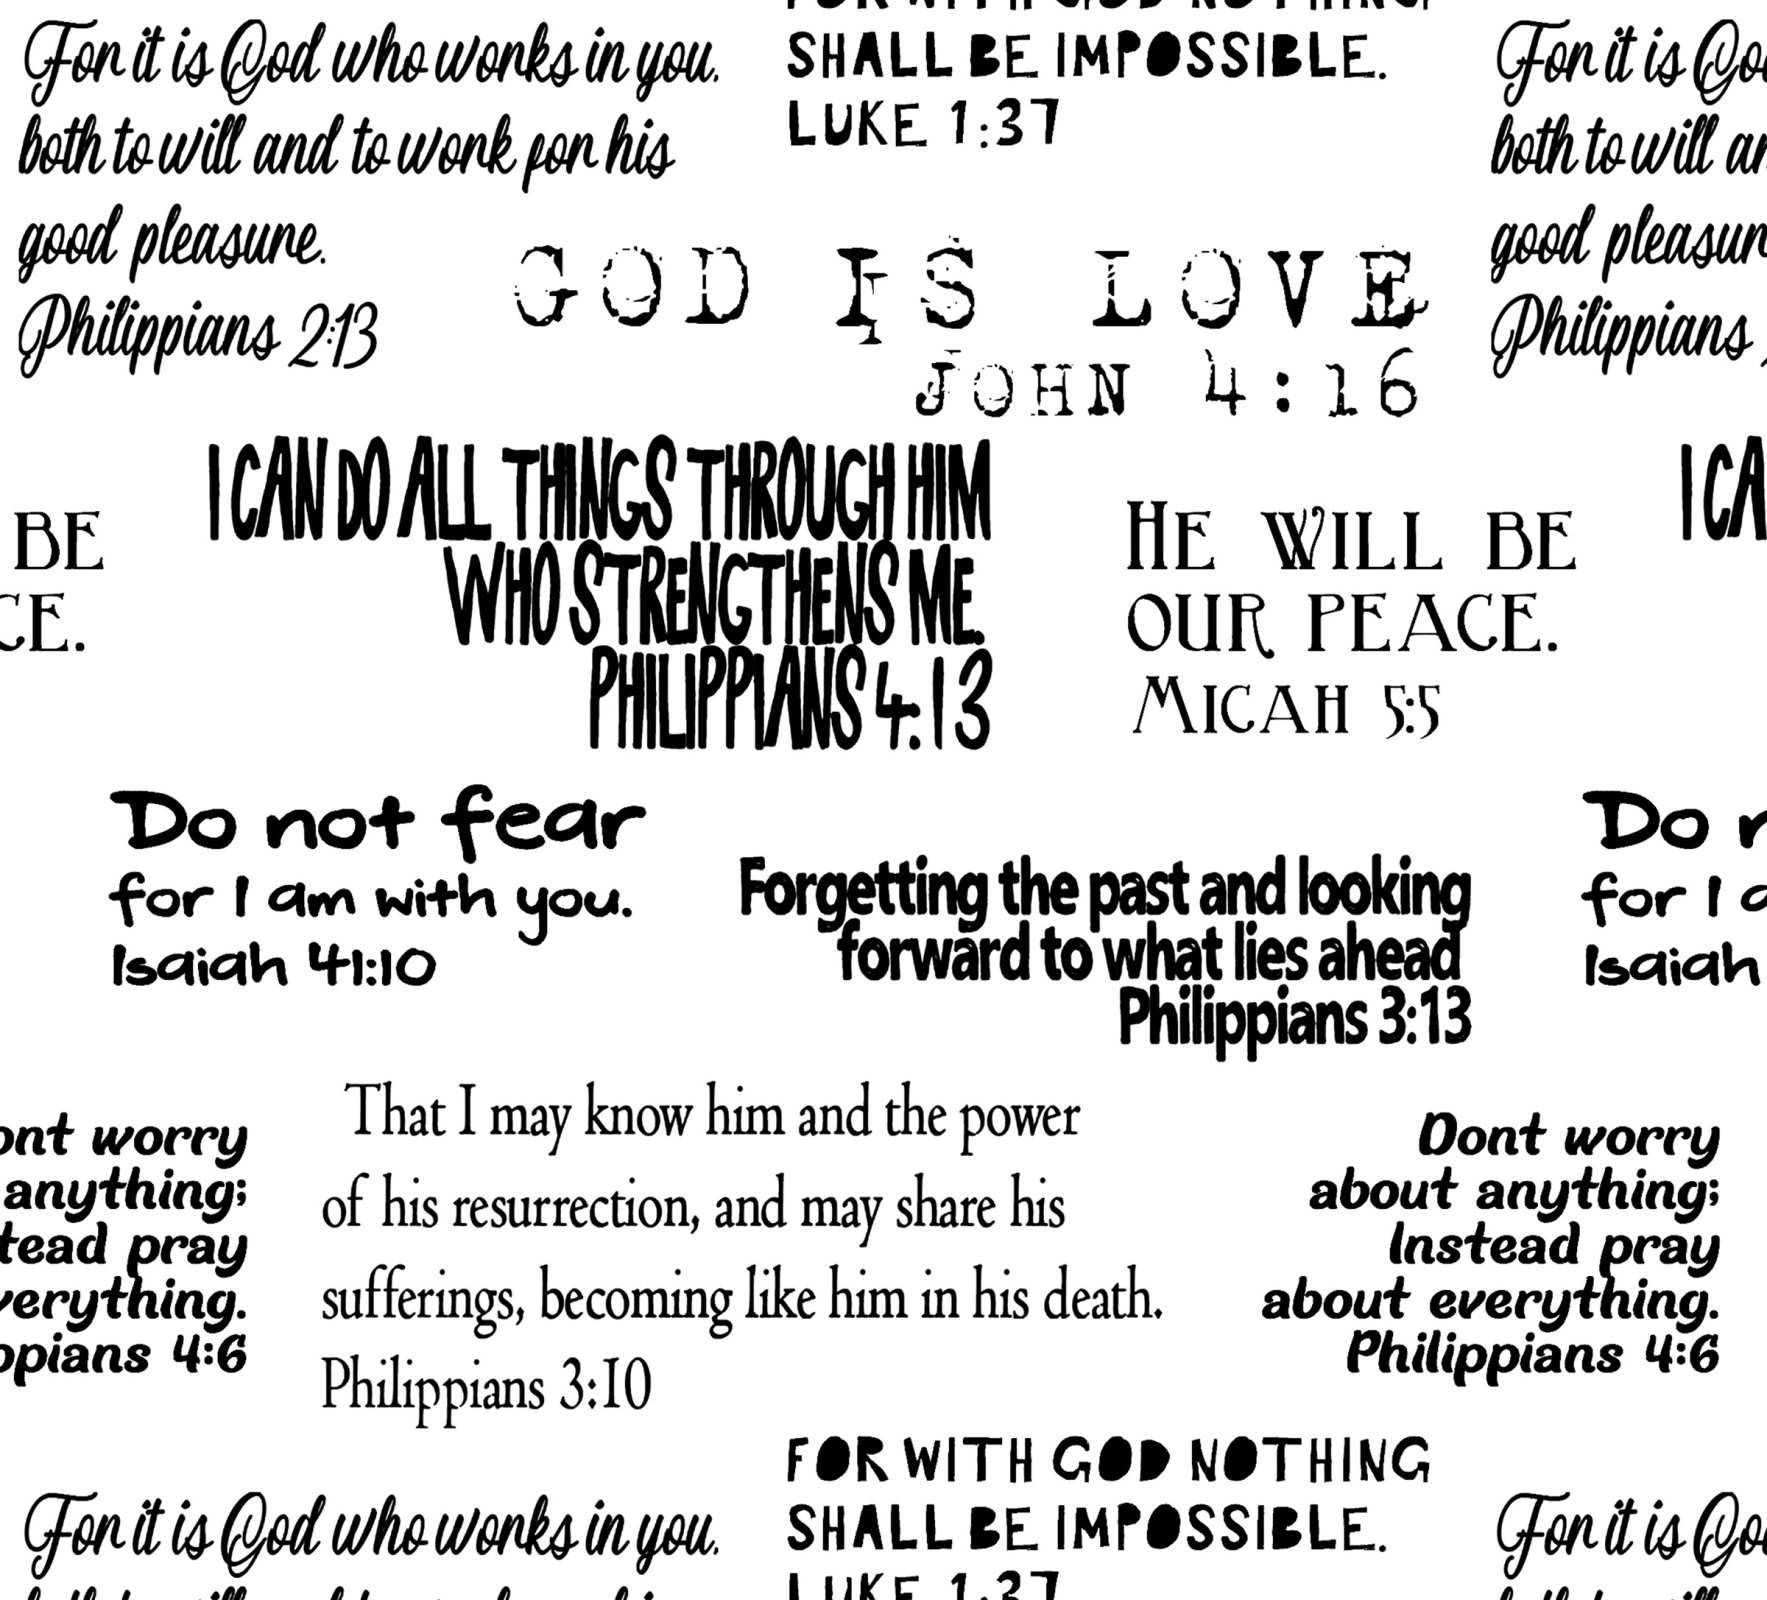 FOR WITH GOD NOTHING
SHALL BE IMPOSSIBLE.
LUKE 1:37
For it is God who works in you.
both to will and to work for his
good pleasure.
Philippians 2:13
For it is
both to will
good
Philippians
GOD IS LOVE
JOHN 4:16
I CAN DO ALL THINGS THROUGH HIM
WHO STRENGTHENS ME.
PHILIPPIANS 4:13
BE
CE.
HE WILL BE
OUR PEACE.
MICAH 5:5
I CA
Do not fear
for I am with you.
Isaiah 41:10
Forgetting the past and looking
forward to what lies ahead
Philippians 3:13
Do
for I
Isaiah
ont worry
anything;
tead pray
verything.
ppians 4:6
That I may know him and the power
of his resurrection, and may share his
sufferings, becoming like him in his death.
Philippians 3:10
Dont worry
about anything;
Instead pray
about everything.
Philippians 4:6
FOR WITH GOD NOTHING
SHALL BE IMPOSSIBLE.
LUKE 1:37
For it is God who works in you.
For it is